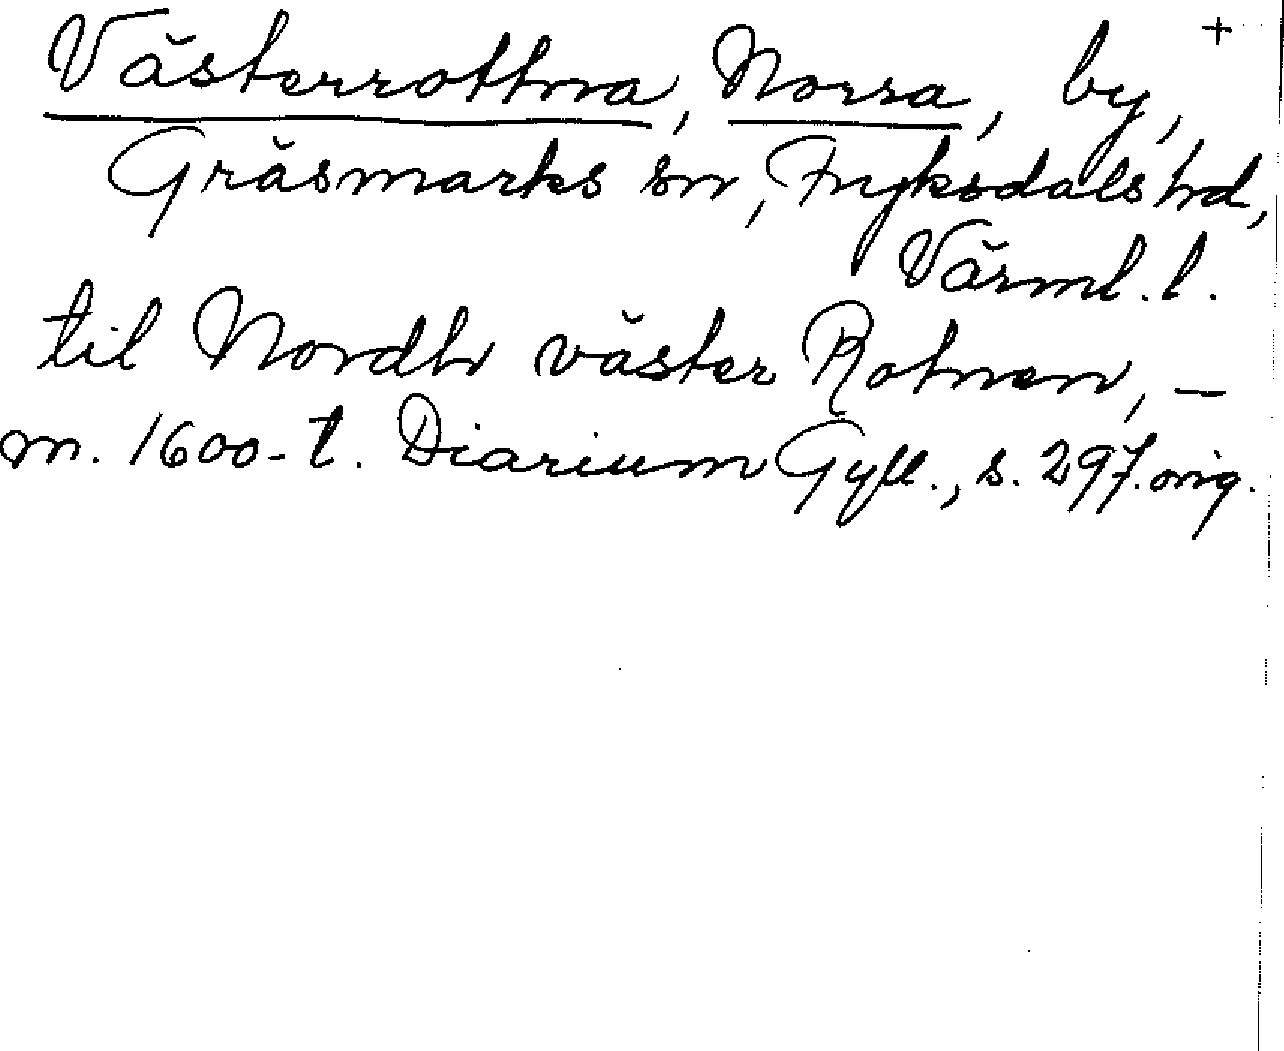 Västerrottna, Norra, by, +
Gräsmarks sn, Fryksdals hd,
Värml. l.
til Nordh väster Rotnen, –
m. 1600-t. Diarium Gyll., s. 297. orig.